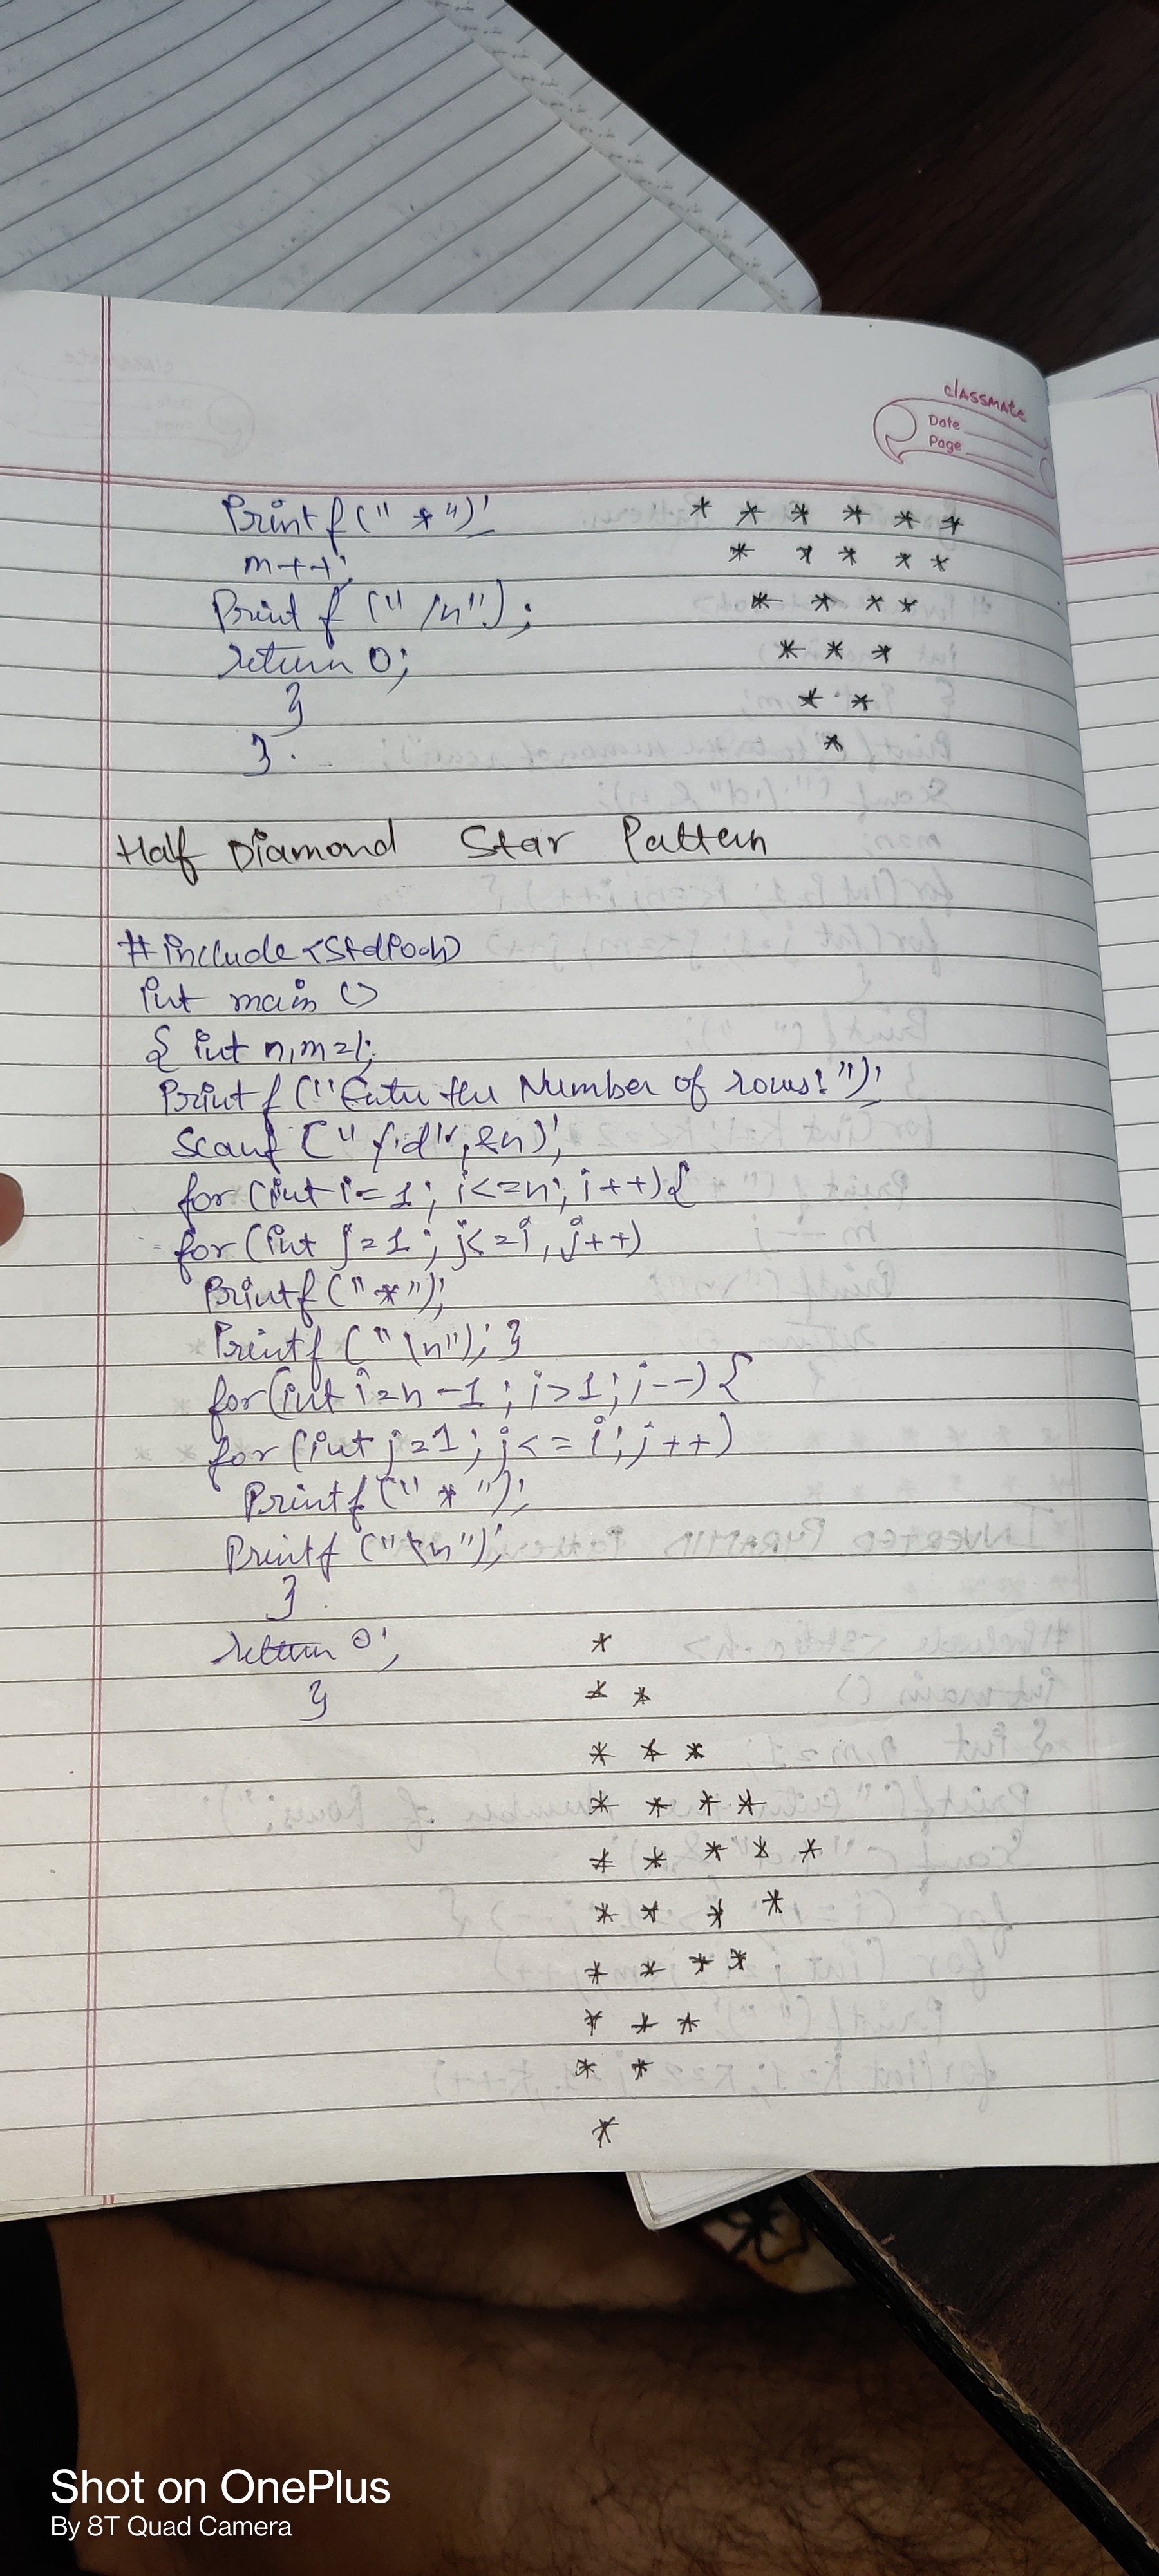 classmate
Date
Page
Printf(" *");
m++;
Printf ("/n");
return 0;
}
}.
* * * * * *
* * * * *
* * * *
* * *
* *
*
Half Diamond Star Pattern
#include <stdio.h>
int main ()
{ int n,m=1;
Printf ("Enter the Number of rows:");
Scanf ("%d", &n);
for (int i=1; i<=n; i++){
for (int j=1; j<=i, j++)
Printf ("*");
Printf ("\n"); }
for(int i=n-1; i>1; i--) {
for (int j=1; j<=i; j++)
Printf (" * ");
Printf ("\n");
}
return 0;
}
*
* *
* * *
* * * *
* * * * *
* * * *
* * * *
* * *
* *
*
Shot on OnePlus
By 8T Quad Camera